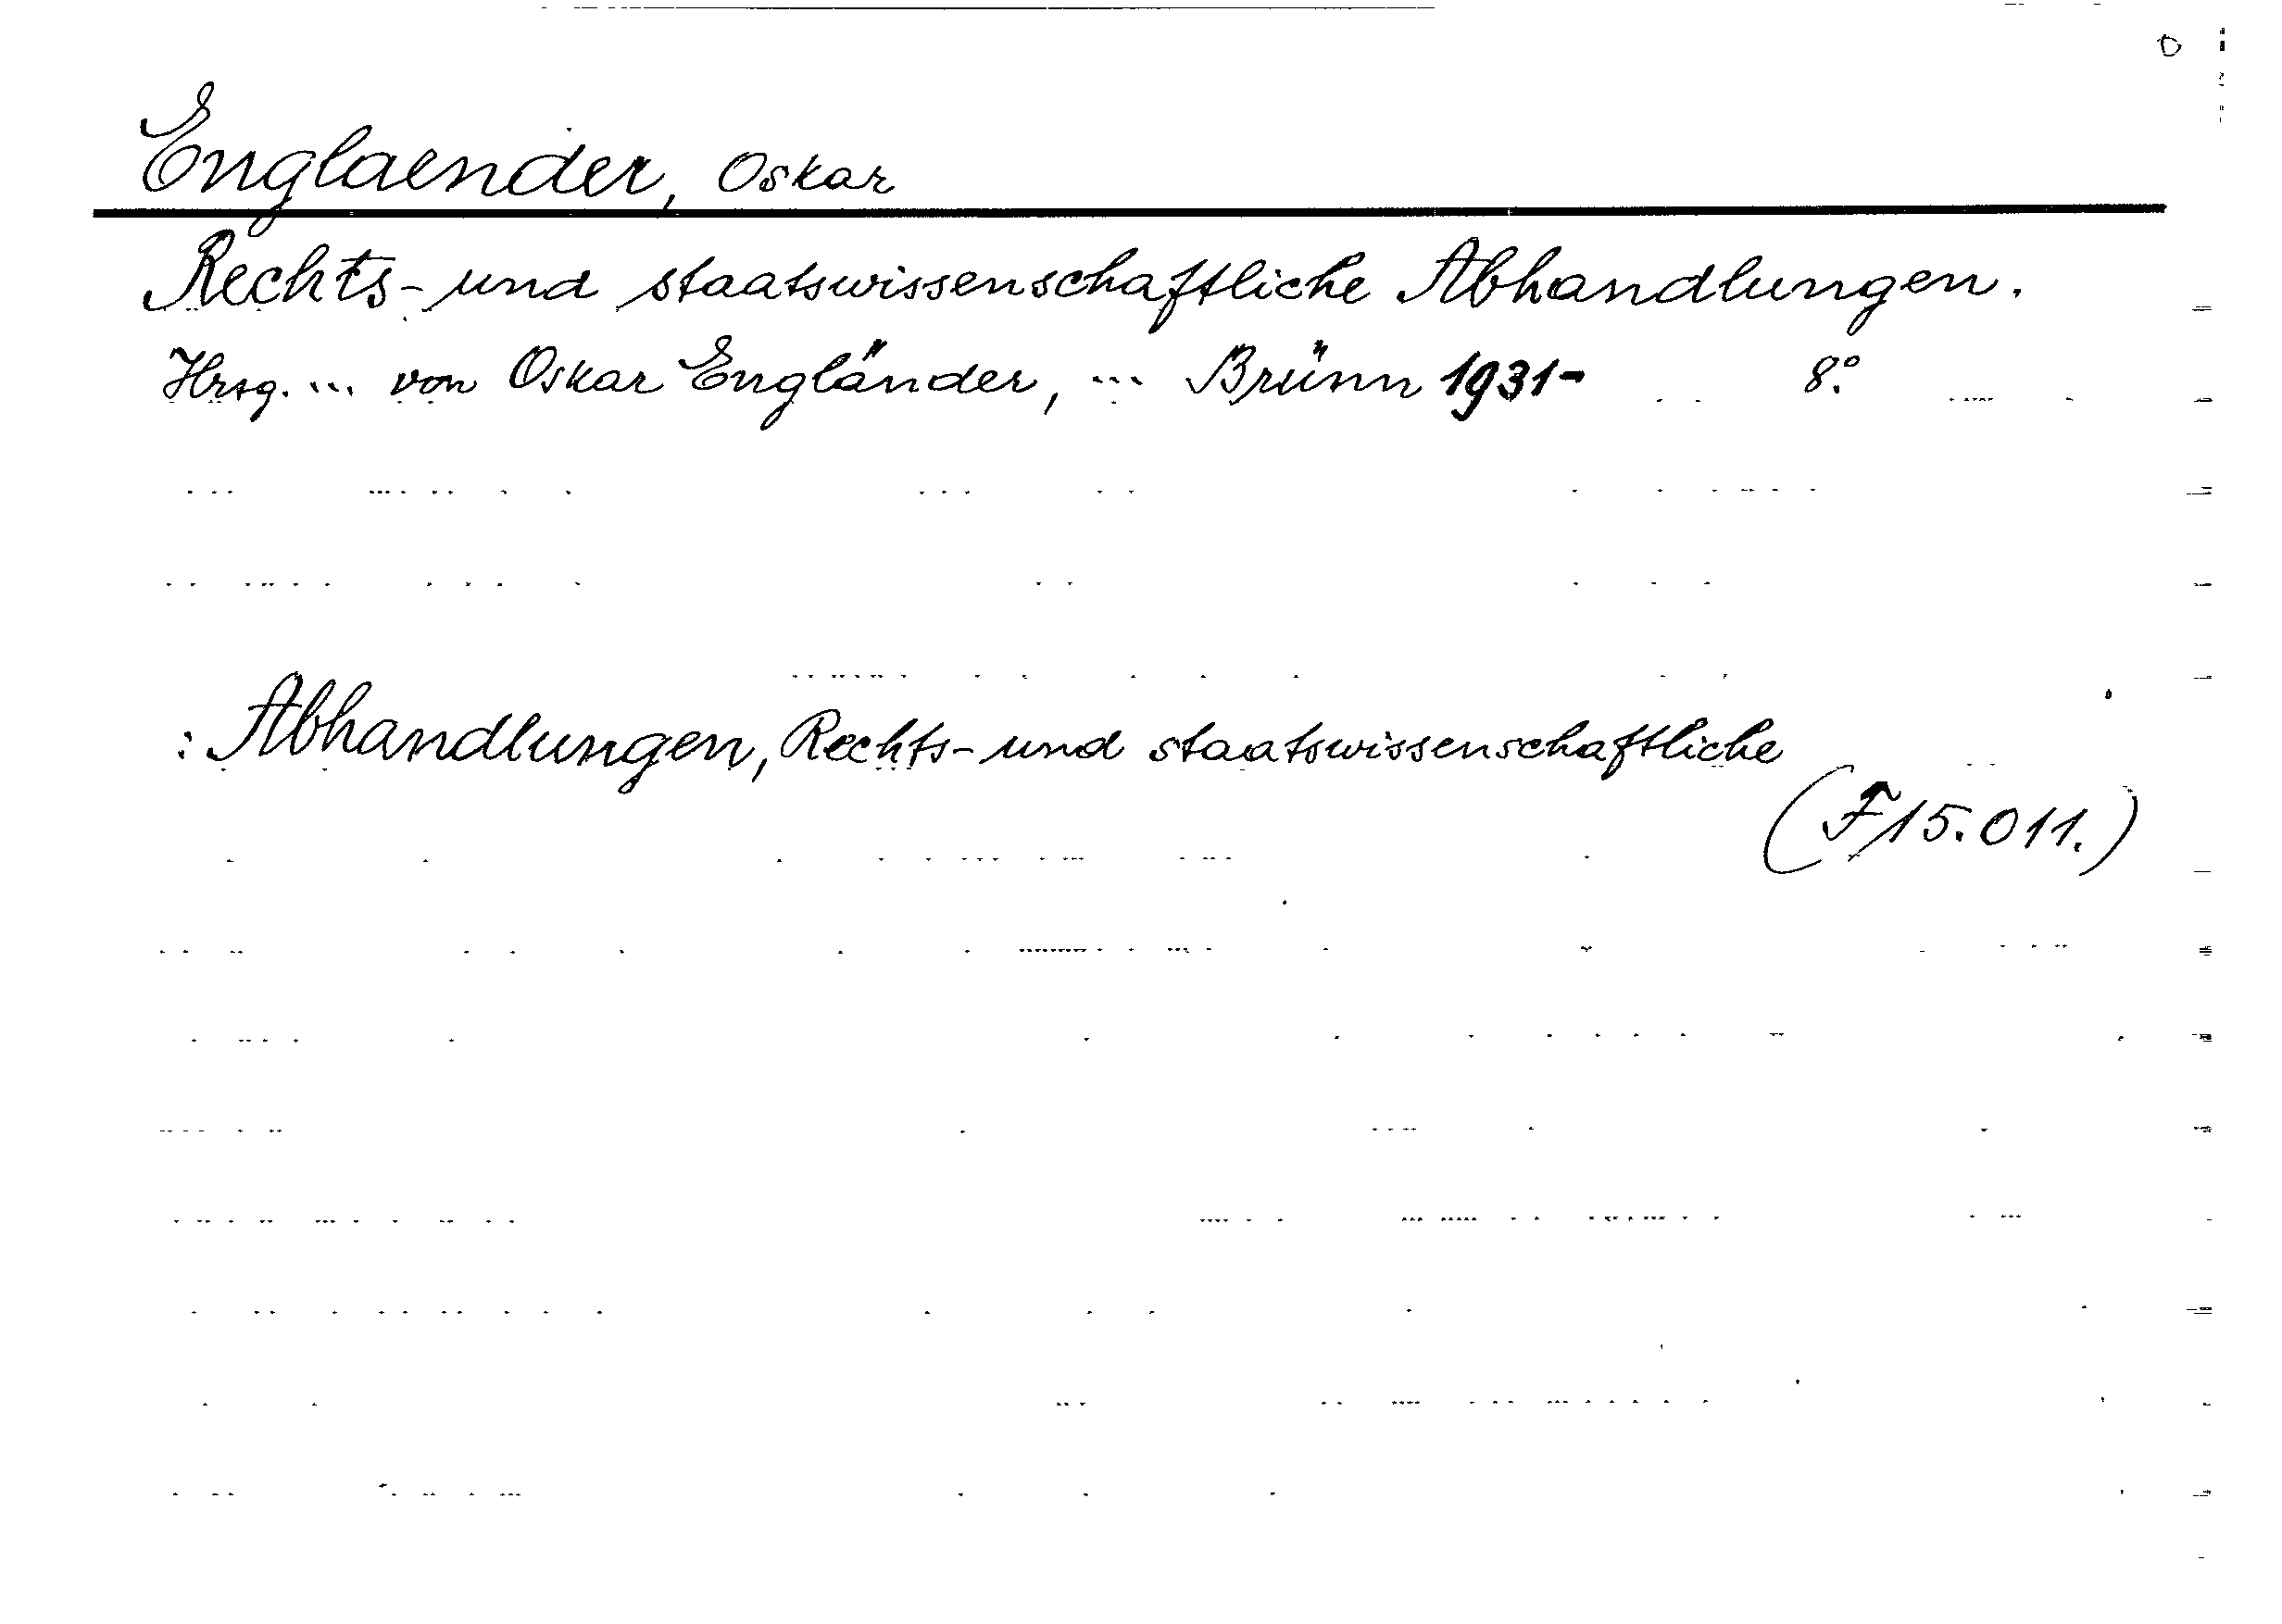 Englaender, Oskar
Rechts- und staatswissenschaftliche Abhandlungen.
Hrsg. ... von Oskar Engländer, ... Brünn 1931- 8.°
: Abhandlungen, Rechts- und staatswissenschaftliche
(F 15.011.)